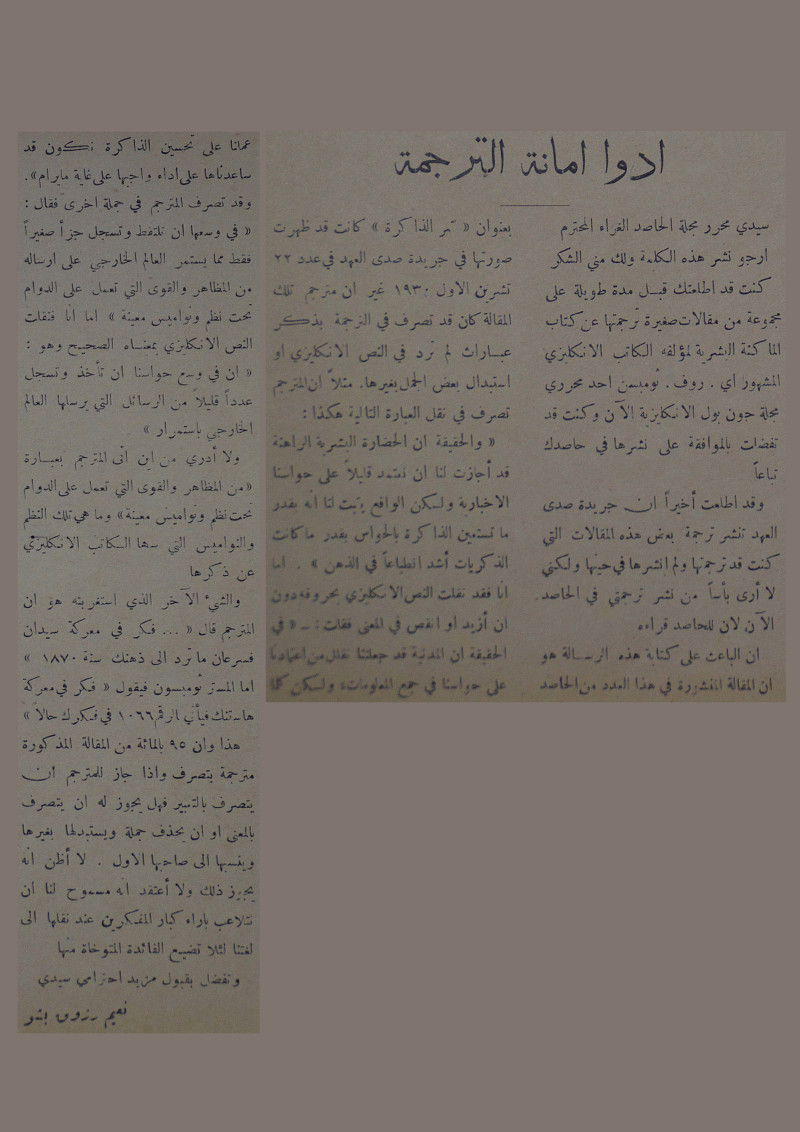 ادوا امانة الترجمة
سيدي محرر مجلة الحاصد الغراء المحترم
ارجو نشر هذه الكلمة ولك مني الشكر
كنت قد اطلعتك قبل مدة طويلة على
مجموعة من مقالات صغيرة ترجمتها عن كتاب
الماكنة البشرية لمؤلفه الكاتب الانكليزي
المشهور اي . روف . تومبسن احد محرري
مجلة جون بول الانكليزية الآن وكنت قد
تفضلت بالموافقة على نشرها في حاصدك
تباعاً
وقد اطلعت أخيراً ان جريدة صدى
العهد تنشر ترجمة بعض هذه المقالات التي
كنت قد ترجمتها ولم انشرها في حينها ولكني
لا أرى بأساً من نشر ترجمتي في الحاصد
الآن لان للحاصد قراءه
ان الباعث على كتابة هذه الرسالة هو
ان المقالة المنشورة في هذا العدد من الحاصد
بعنوان « سر الذاكرة » كانت قد ظهرت
صورتها في جريدة صدى العهد في عدد ٢٢
تشرين الاول ١٩٣٠ غير ان مترجم تلك
المقالة كان قد تصرف في الترجمة بذكر
عبارات لم ترد في النص الانكليزي او
استبدال بعض الجمل بغيرها. مثلاً ان المترجم
تصرف في نقل العبارة التالية هكذا :
« والحقيقة ان الحضارة البشرية الراهنة
قد أجازت لنا ان نعتمد قليلاً على حواسنا
الاخبارية ولكن الواقع يثبت لنا انه بقدر
ما تستعين الذاكرة بالحواس بقدر ما كانت
الذكريات أشد انطباعاً في الذهن » . اما
انا فقد نقلت النص الانكليزي بحروفه دون
ان أزيد او انقص في المعنى فقلت : ـ « في
الحقيقة ان المدنية قد جعلتنا نقلل من اعتمادنا
على حواسنا في جمع المعلومات، ولكن كلما
عملنا على تحسين الذاكرة نكون قد
ساعدناها على اداء واجبها على غاية مايرام».
وقد تصرف المترجم في جملة اخرى فقال :
« في وسعها ان تلتقط وتسجل جزأ صغيراً
فقط مما يستمر العالم الخارجي على ارساله
من المظاهر والقوى التي تعمل على الدوام
تحت نظم ونواميس معينة » اما انا فنقلت
النص الانكليزي بمعناه الصحيح وهو :
« ان في وسع حواسنا ان تأخذ وتسجل
عدداً قليلاً من الرسائل التي يرسلها العالم
الخارجي باستمرار »
ولا أدري من اين اتى المترجم بعبارة
«من المظاهر والقوى التي تعمل على الدوام
تحت نظم ونواميس معينة» وما هي تلك النظم
والنواميس التي سها الكاتب الانكليزي
عن ذكرها
والشيء الآخر الذي استغربته هو ان
المترجم قال « ... فكر في معركة سيدان
فسرعان ما ترد الى ذهنك سنة ١٨٧٠ »
اما المستر تومبسون فيقول « فكر في معركة
هاستنك فيأتي الرقم ١٠٦٦ في فكرك حالاً »
هذا وان ٩٥ بالمائة من المقالة المذكورة
مترجمة بتصرف واذا جاز للمترجم ان
يتصرف بالتعبير فهل يجوز له ان يتصرف
بالمعنى او ان يحذف جملة ويستبدلها بغيرها
وينسبها الى صاحبها الاول . لا أظن انه
يجوز ذلك ولا أعتقد انه مسموح لنا ان
نتلاعب باراء كبار المفكرين عند نقلها الى
لغتنا لئلا تضيع الفائدة المتوخاة منها
وتفضل بقبول مزيد احترامي سيدي
نعيم رزوق